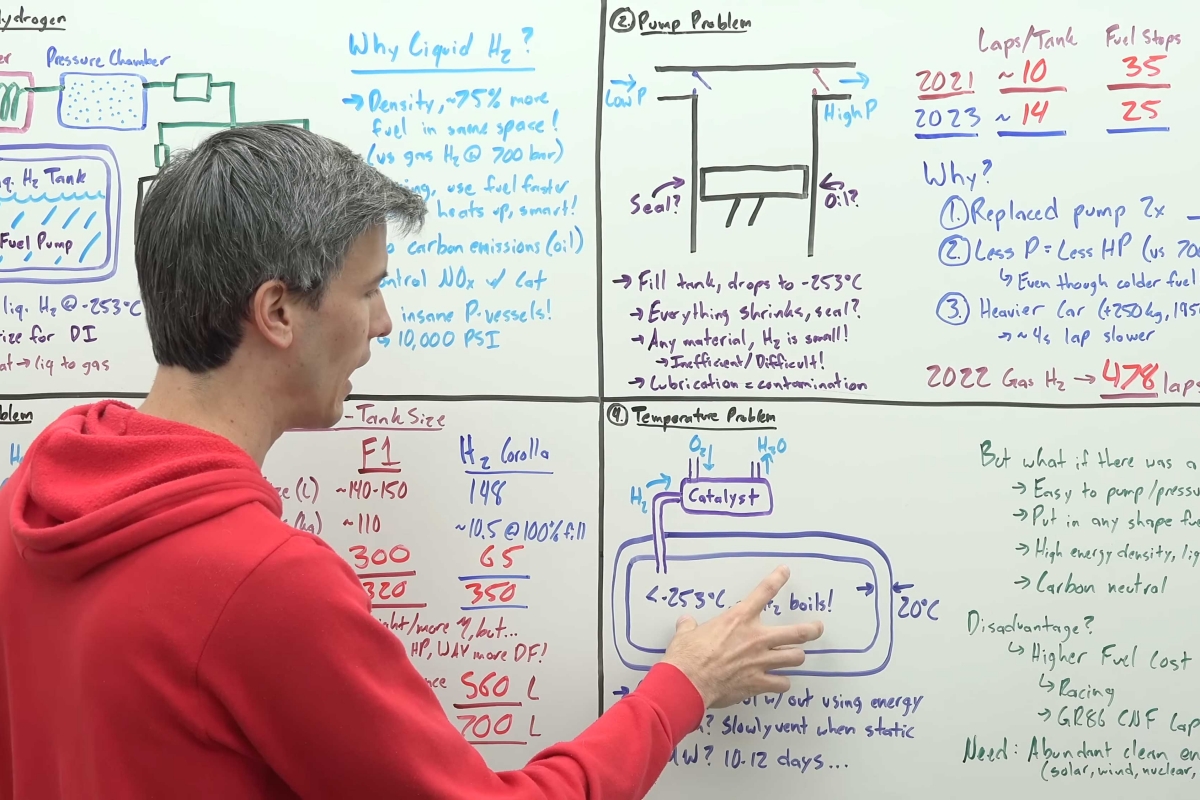 ydrogen
er
Pressure Chamber
q. H2 Tank
Fuel Pump
liq. H2 @ -253°C
rize for DI
at → liq to gas
Why Liquid H2?
→ Density, ~75% more
fuel in same space!
(vs gas H2 @ 700 bar)
ing, use fuel faster
heats up, smart!
o carbon emissions (oil)
ntrol NOx w/ Cat
insane P-vessels!
10,000 PSI
2. Pump Problem
Low P
High P
Seal?
Oil?
→ Fill tank, drops to -253°C
→ Everything shrinks, seal?
→ Any material, H2 is small!
→ Inefficient/Difficult!
→ Lubrication = contamination
Laps/Tank Fuel Stops
2021 ~10 35
2023 ~14 25
Why?
1. Replaced pump 2x
2. Less P = Less HP (vs 700
↳ Even though colder fuel
3. Heavier Car (+250kg, 195
→ ~4s lap slower
2022 Gas H2 → 478 laps
blem
- Tank Size
F1 H2 Corolla
ze (L) ~140-150 148
(kg) ~110 ~10.5 @ 100% fill
300 65
320 350
ight/more η, but...
HP, WAY more DF!
nce 560 L
700 L
4. Temperature Problem
O2
H2O
H2
Catalyst
<-253°C, H2 boils!
20°C
ol w/out using energy
? Slowly vent when static
W? 10-12 days...
But what if there was a
→ Easy to pump/pressu
→ Put in any shape fu
→ High energy density, liq
→ Carbon neutral
Disadvantage?
↳ Higher Fuel Cost
↳ Racing
→ GR86 CNF Lap
Need: Abundant clean en
(solar, wind, nuclear,